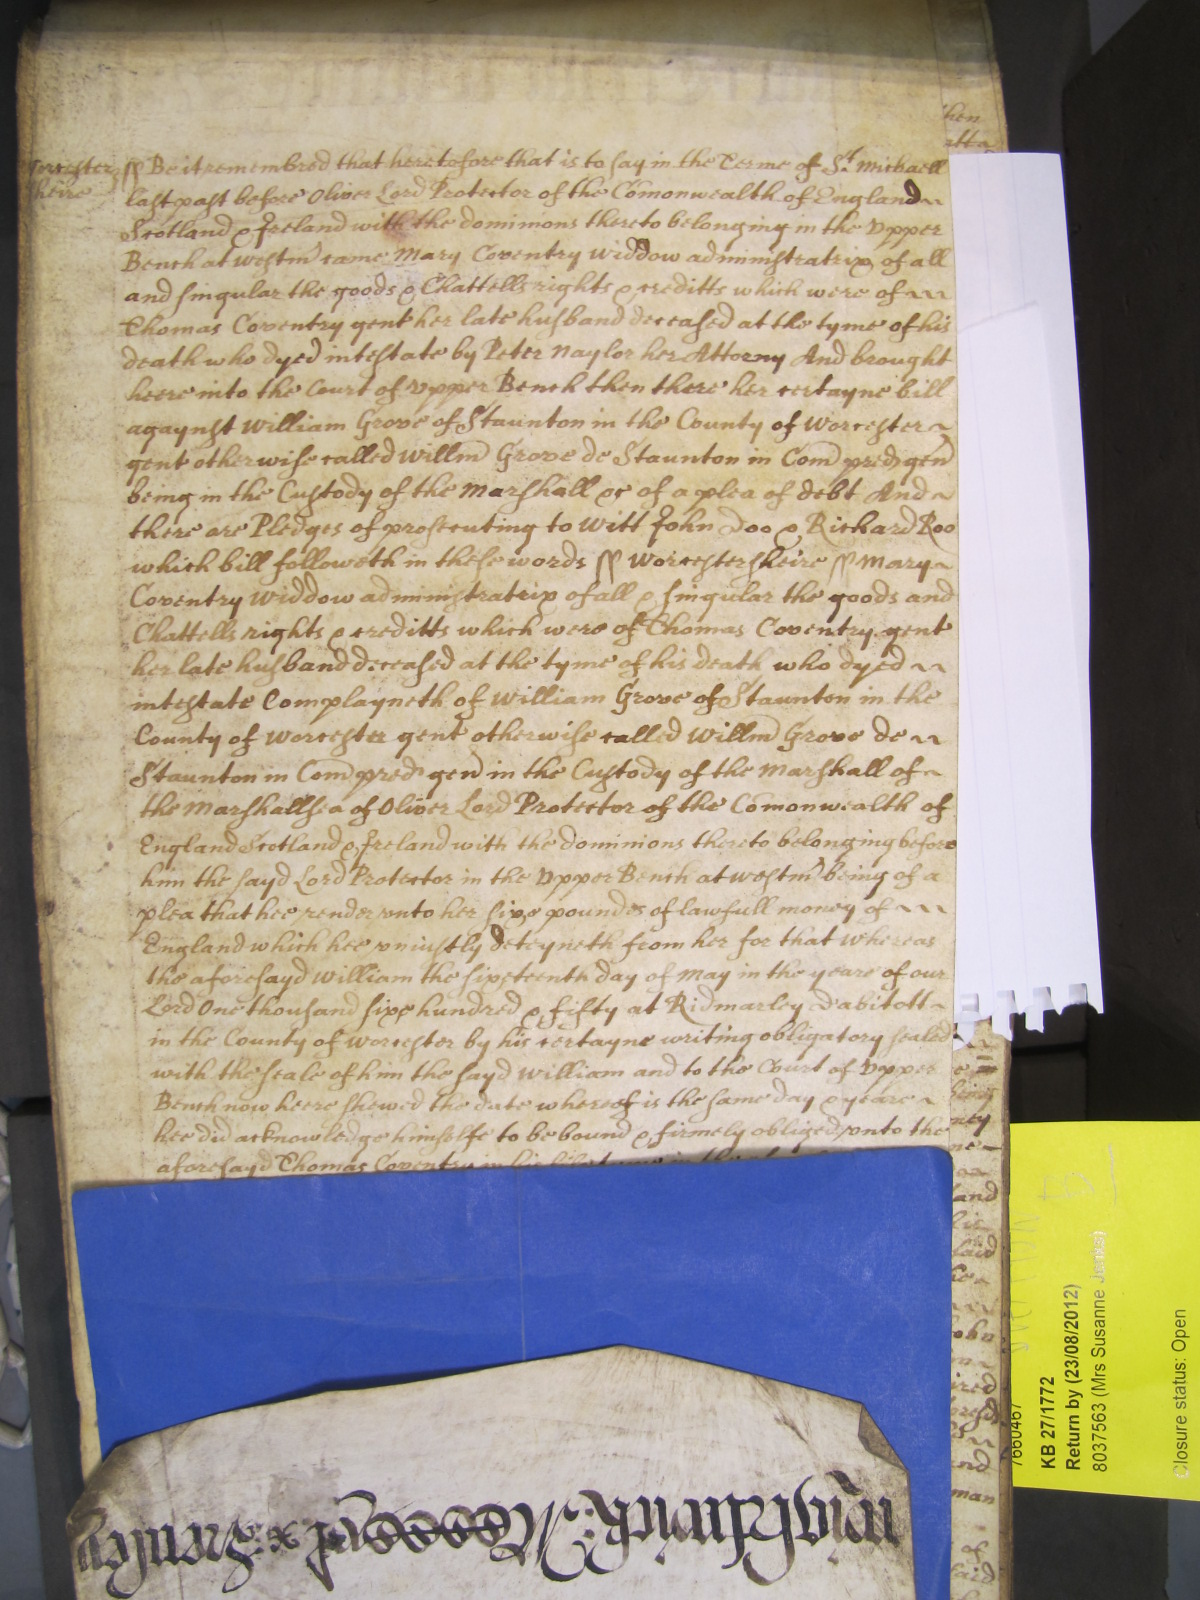 Worcester
sheire
ss Be it remembred that heretofore that is to say in the Terme of St. Michaell
last past before Oliver Lord Protector of the Comonwealth of England
Scotland & Ireland with the dominions thereto belonging in the Vpper
Bench at westm came Mary Coventry widdow administratrix of all
and singular the goods & Chattells rights & creditts which were of
Thomas Coventry gent her late husband deceased at the tyme of his
death who dyed intestate by Peter Naylor her Attorny And brought
heere into the Court of vpper Bench then there her certayne bill
agaynst William Grove of Staunton in the County of Worcester
gent otherwise called Willm Grove de Staunton in Com pred gen
being in the Custody of the Marshall &c of a plea of debt And
there are Pledges of prosecuting to witt John Doo & Richard Roo
which bill followeth in these words ss Worcestersheire ss Mary
Coventry widdow administratrix of all & singular the goods and
Chattells rights & creditts which were of Thomas Coventry gent
her late husband deceased at the tyme of his death who dyed
intestate Complayneth of William Grove of Staunton in the
County of Worcester gent otherwise called Willm Grove de
Staunton in Com pred gen in the Custody of the Marshall of
the Marshallsea of Oliver Lord Protector of the Comonwealth of
England Scotland & Ireland with the dominions thereto belonging before
him the sayd Lord Protector in the Vpper Bench at westm being of a
plea that hee render vnto her sixe poundes of lawfull money of
England which hee vniustly deteyneth from her for that whereas
the aforesayd William the sixteenth day of May in the yeare of our
Lord One thousand sixe hundred & fifty at Ridmarley Dabitott
in the County of Worcester by his certayne writing obligatory sealed
with the seale of him the sayd William and to the Court of Vpper
Bench now heere shewed the date whereof is the same day & yeare
hee did acknowledge himselfe to be bound & firmely obliged vnto the
aforesayd Thomas Coventry in his
then
land
said
John
and
man
of
said
KB 27/1772
Return by (23/08/2012)
8037563 (Mrs Susanne
Closure status: Open